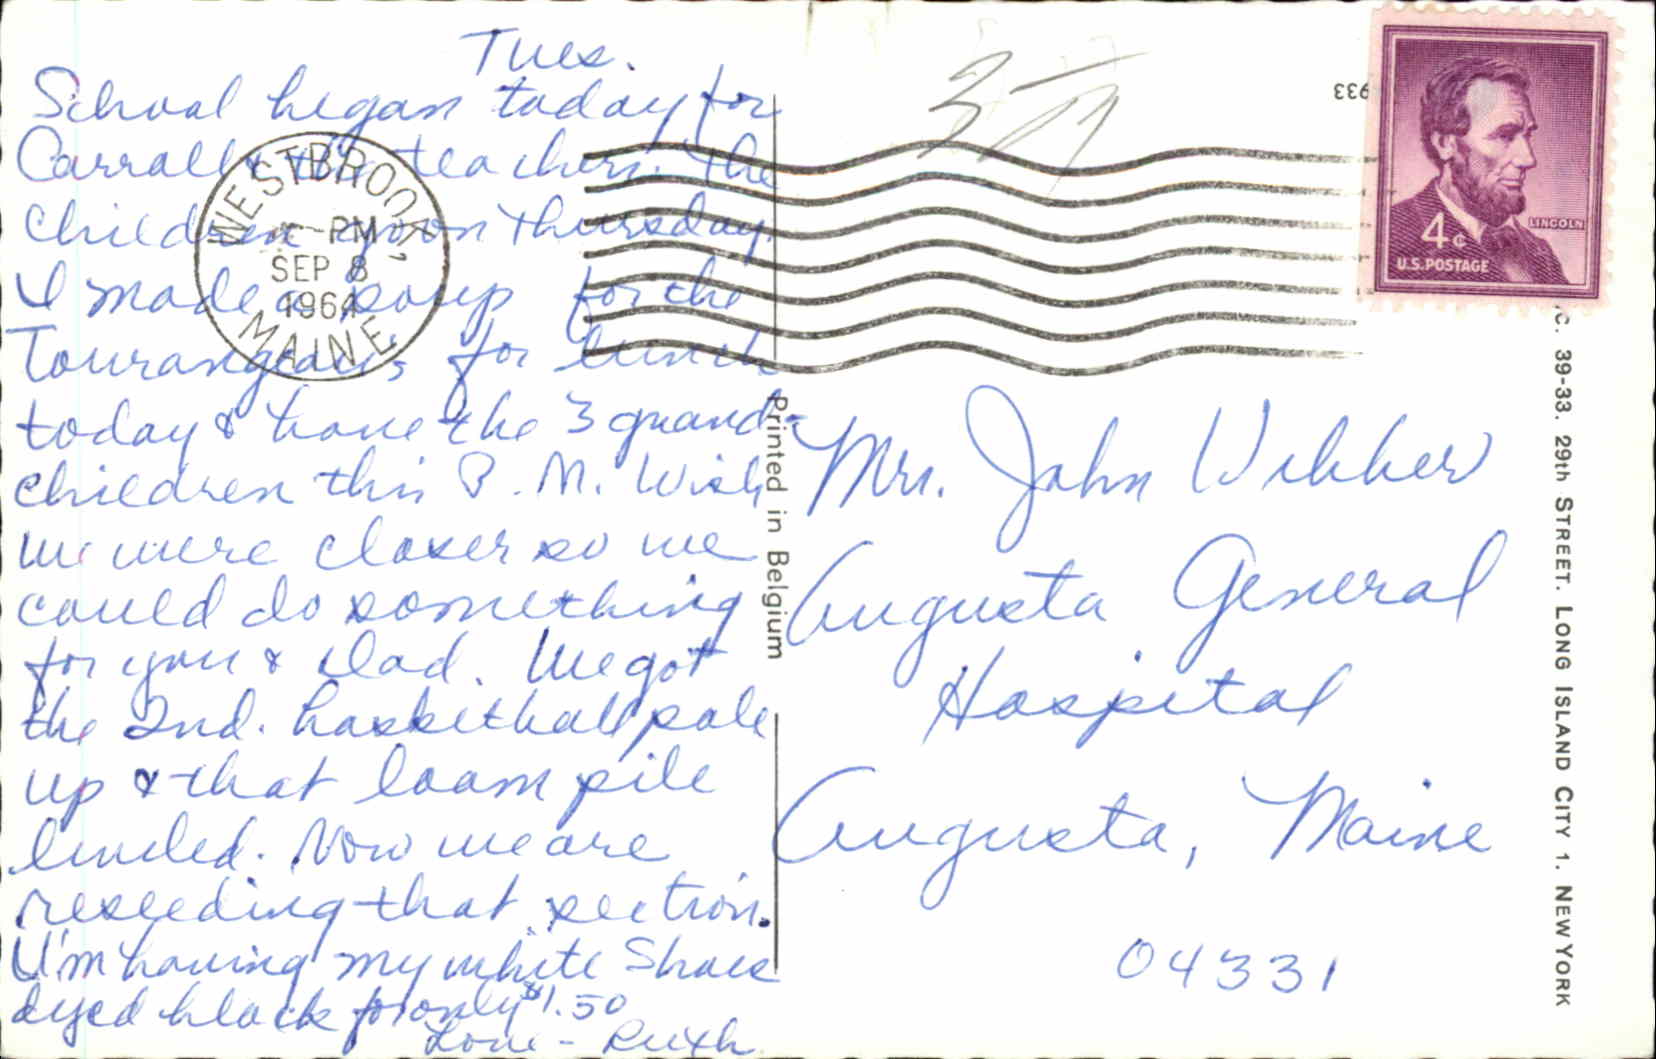 Tues.
School began today for
Carroll & the teachers. The
children go on Thursday.
I made a soup for the
Tourangeaus for lunch
today & have the 3 grand-
children this P.M. Wish
we were closer so we
could do something
for you & Dad. We got
the 2nd. basketball pole
up & that loam pile
leveled. Now we are
reseeding that section.
I'm having my white shoes
dyed black for only $1.50
Love - Ruth
WESTBROOK,
PM
SEP 8
1964
MAINE
Printed in Belgium
LINCOLN
4¢
U.S. POSTAGE
Mrs. John Vibber
Augusta General
Hospital
Augusta, Maine
04331
C. 39-33. 29th STREET. LONG ISLAND CITY 1. NEW YORK